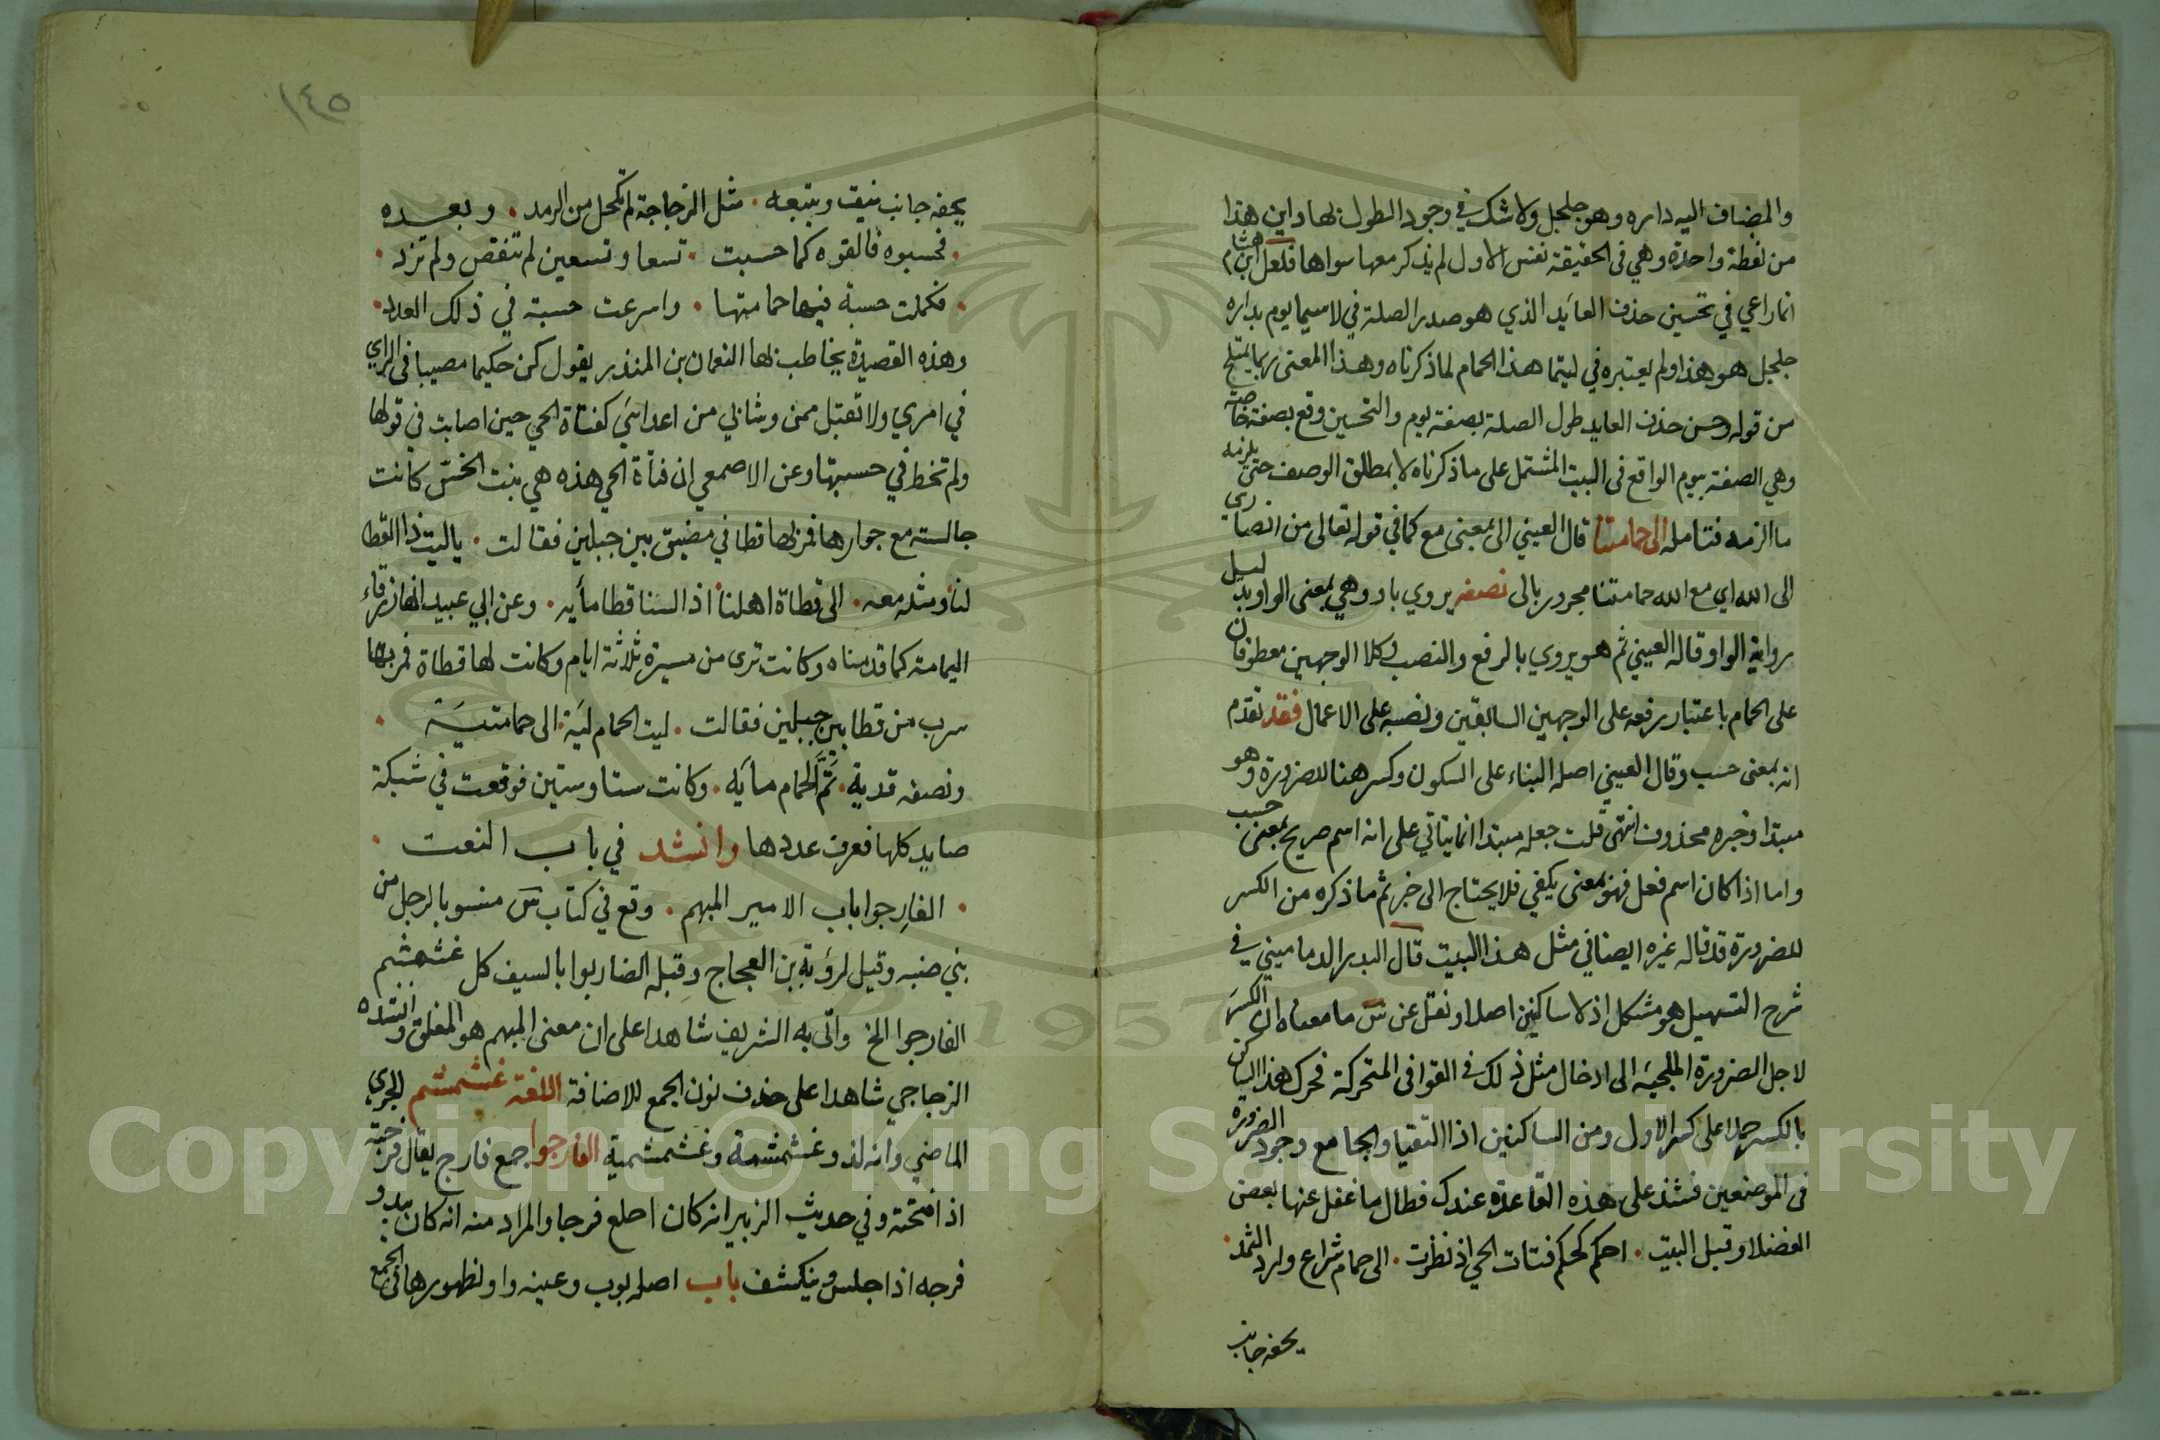 والمضاف اليه داره وهو جلجل ولا شك في وجود الطول لها واين هذا
من لفظة واحدة وهي في الحقيقة نفس الاول لم يذكر معها سواها فلعل ابن هشام
انما راعي في تحسين حذف العايد الذي هو صدر الصلة في لاسيما يوم بداره
جلجل هو هذا ولم يعتبره في ليتما هذا الحمام لما ذكرناه وهذا المعنى ربما
من قوله وحسن حذف العايد طول الصلة بصفة يوم والتحسين وقع بصفة خاصة
وهي الصفة بيوم الواقع في البيت المشتمل على ما ذكرناه لا بمطلق الوصف حتى يلزمه
ما الزمه فتامله الى حمامتنا قال العيني الى بمعنى مع كما في قوله تعالى من انصاري
الى الله اي مع الله حمامتنا مجرور بالى نصفه يروي باو وهي بمعنى الواو بدليل
رواية الواو قاله العيني ثم هو يروي بالرفع والنصب وكلا الوجهين معطوفان
على الحمام باعتبار رفعه على الوجهين السابقين ونصبه على الاعمال فقد تقدم
انه بمعنى حسب وقال العيني اصله البناء على السكون وكسر هنا للضرورة وهو
مبتدا وخبره محذوف انتهى قلت جعله مبتدا انما يتاتي على انه اسم صريح بمعنى حسب
واما اذا كان اسم فعل فهو بمعنى يكفي فلا يحتاج الى خبر ثم ما ذكره من الكسر
للضرورة قد قاله غيره ايضا في مثل هذا البيت قال البدر الدماميني في
شرح التسهيل هو مشكل اذ لا ساكنين اصلا ونقل عن س ما معناه ان الكسر
لاجل الضرورة الملجيه الى ادخال مثل ذلك في القوافي المتحركة فحرك هذا الساكن
بالكسر حملا على كسر الاول ومن الساكنين اذا التقيا والجامع وجود الضرورة
في الموضعين فشذ على هذه القاعدة عندك فطال ما غفل عنها بعض
الفضلا وقبل البيت . احكم كحكم فتات الحي اذ نظرت . الى حمام شراع وارد الثمد .
يحفه جانب
١٤٥
يحفه جانب نيق ويتبعه . مثل الزجاجة لم تكحل من الرمد . وبعده
. فحسبوه فالفوه كما حسبت . تسعا وتسعين لم تنقص ولم تزد .
. فكملت حسبة فيها حمامتها . واسرعت حسبة في ذلك العدد .
وهذه القصيدة يخاطب لها النعمان بن المنذر يقول كن حكيما مصيبا في الراي
في امري ولا تقبل ممن وشا لي من اعداسَي كفتاة الحي حين اصابت في قولها
ولم تخط في حسبتها وعن الاصمعي ان فتاة الحي هذه هي بنت الخسّ كانت
جالسته مع جوارها فمر لها قطا في مضيق بين جبلين فقالت . ياليت ذا القطا
لنا ومثله معه . الى قطاة اهلنا اذ السنا قطا مأيه . وعن ابي عبيد انها زرقاء
اليمامة كما قدمناه وكانت ترى من مسيرة ثلاثة ايام وكانت لها قطاة فمر بها
سرب من قطا بين جبلين فقالت . ليت الحمام ليَه . الى حمامتيَه .
ونصفه قديه . تَمَّ الحمام مايَه . وكانت ستا وستين فوقعت في شبكة
صايد كلها فعرف عددها وانشد في باب النعت .
. الفارِجوا باب الامير المبهم . وقع في كتاب س منسوبا لرجل من
بني ضبه وقيل لرؤبة بن العجاج وقبله الضاربوا بالسيف كل غشمشم
الفارجوا الخ واتى به الشريف شاهدا على ان معنى المبهم هو المغلق وانشده
الزجاجي شاهدا على حذف نون الجمع للاضافة اللغة غشمشم الجري
الماضي وانه لذو غشمشمة وغشمشمية الفارجوا جمع فارج يقال فرجته
اذا فتحته وفي حديث الزبير انه كان اجلع فرجا والمراد منه انه كان يبدو
فرجه اذا جلس وينكشف باب اصله بوب وعينه واو لظهورها في الجمع
Copyright © King Saud University
1957